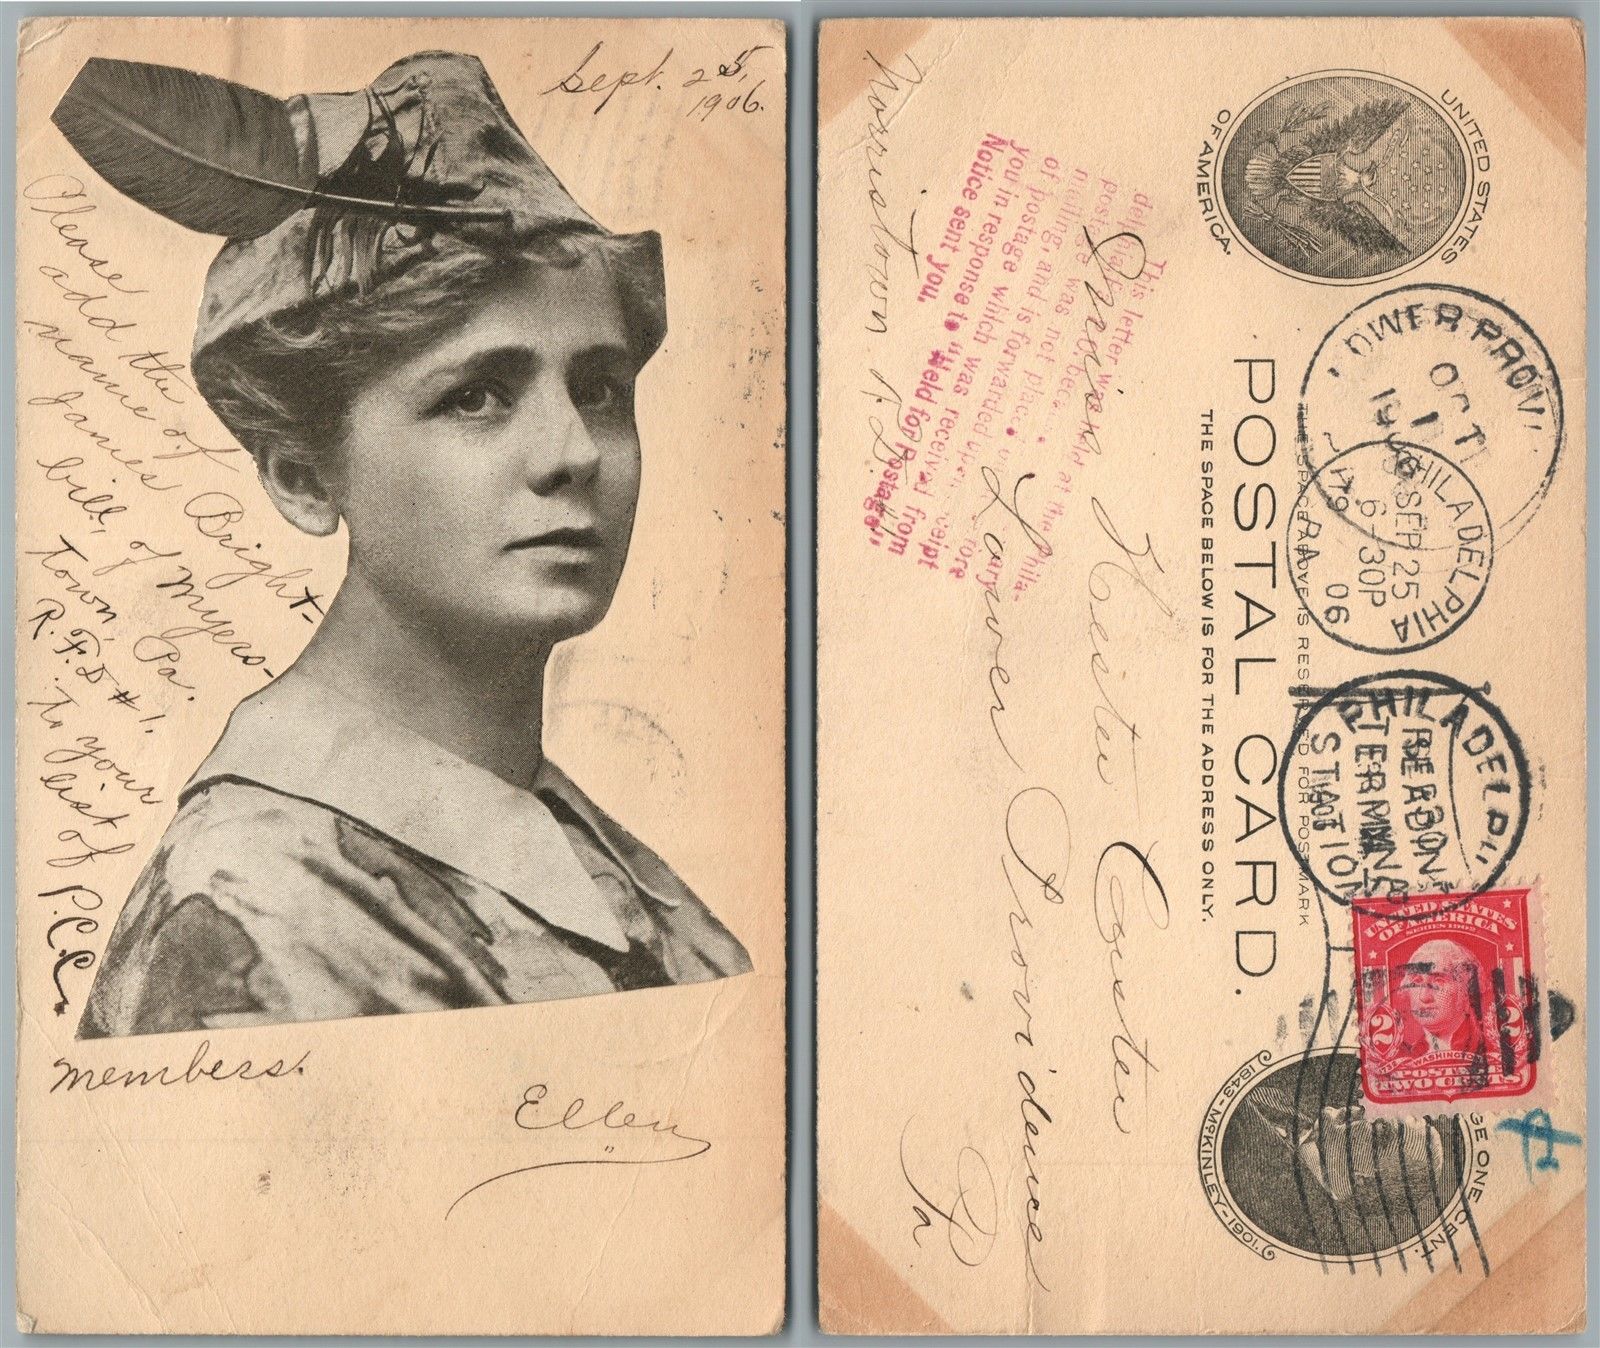 Sept. 25,
1906.
Please
add the
name of
James Bright-
bill, of Myers-
town, Pa.
R.F.D #1,
to your
list of
P.C.C.
members.
Ellen
UNITED STATES
OF AMERICA.
POSTAL CARD.
THE SPACE ABOVE IS RESERVED FOR POSTMARK
THE SPACE BELOW IS FOR THE ADDRESS ONLY.
1843-McKINLEY-1901.
GE ONE CENT.
UNITED STATES
OF AMERICA
SERIES 1902
2 2
WASHINGTON
POSTAGE
TWO CENTS
LOWER PROV
OCT
1
PHILADELPHIA
SEP 25
6-30P
06
PA
PHILADELP
TERMINAL
STATION
Miss Hester Custer
Lower Providence
Norristown Pa
This letter was held at the Phila-
delphia, because
postage was not placed before
mailing, and is forwarded upon receipt
of postage which was received from
you in response to "Held for Postage"
Notice sent you.